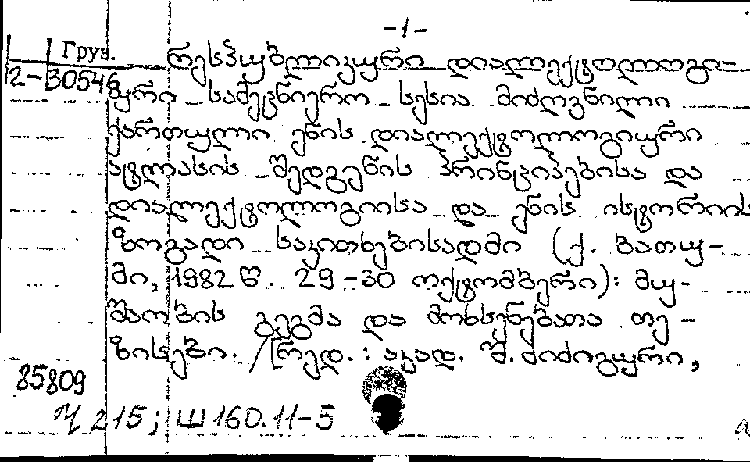 -1-
Груз.
2-30546
რესპუბლიკური დიალექტოლოგი-
ური სამეცნიერო სესია მიძღვნილი
ქართული ენის დიალექტოლოგიური
ატლასის შედგენის პრინციპებისა და
დიალექტოლოგიისა და ენის ისტორიის
ზოგადი საკითხებისადმი (ქ. ბათუ-
მი, 1982 წ. 29-30 ოქტომბერი): მუ-
შაობის გეგმა და მოხსენებათა თე-
ზისები. /[რედ.: აკად. შ. ძიძიგური,
85809
Ч 215; Ш160.11-5